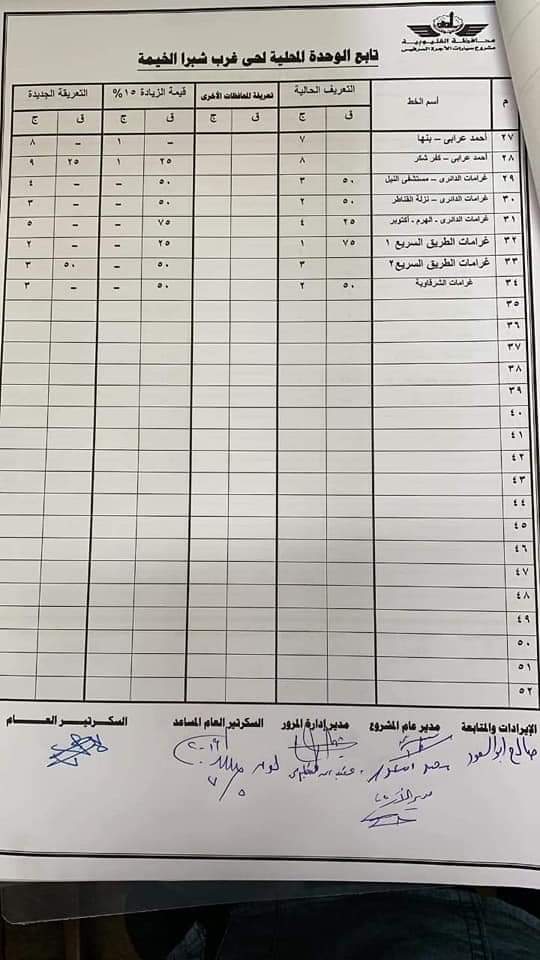 محافظة القليوبية
مشروع سيارات الأجرة السرفيس
تابع الوحدة المحلية لحى غرب شبرا الخيمة
م أسم الخط التعريف الحالية تعريفة للمحافظات الأخرى قيمة الزيادة ١٥% التعريفة الجديدة
ق ج ق ج ق ج ق ج
٢٧ أحمد عرابى – بنها ٧ – ١ – ٨
٢٨ أحمد عرابى – كفر شكر ٨ ٢٥ ١ ٢٥ ٩
٢٩ غرامات الدائرى – مستشفى النيل ٥٠ ٣ ٥٠ – – ٤
٣٠ غرامات الدائرى – نزلة القناطر ٥٠ ٢ ٥٠ – – ٣
٣١ غرامات الدائرى - الهرم - أكتوبر ٢٥ ٤ ٧٥ – – ٥
٣٢ غرامات الطريق السريع ١ ٧٥ ١ ٢٥ – – ٢
٣٣ غرامات الطريق السريع٢ ٣ ٥٠ – ٥٠ ٣
٣٤ غرامات الشرقاوية ٥٠ ٢ ٥٠ – – ٣
٣٥
٣٦
٣٧
٣٨
٣٩
٤٠
٤١
٤٢
٤٣
٤٤
٤٥
٤٦
٤٧
٤٨
٤٩
٥٠
٥١
٥٢
الإيرادات والمتابعة مدير عام المشروع مدير إدارة المرور السكرتير العام المساعد السكرتير العام
صالح ابو السعود